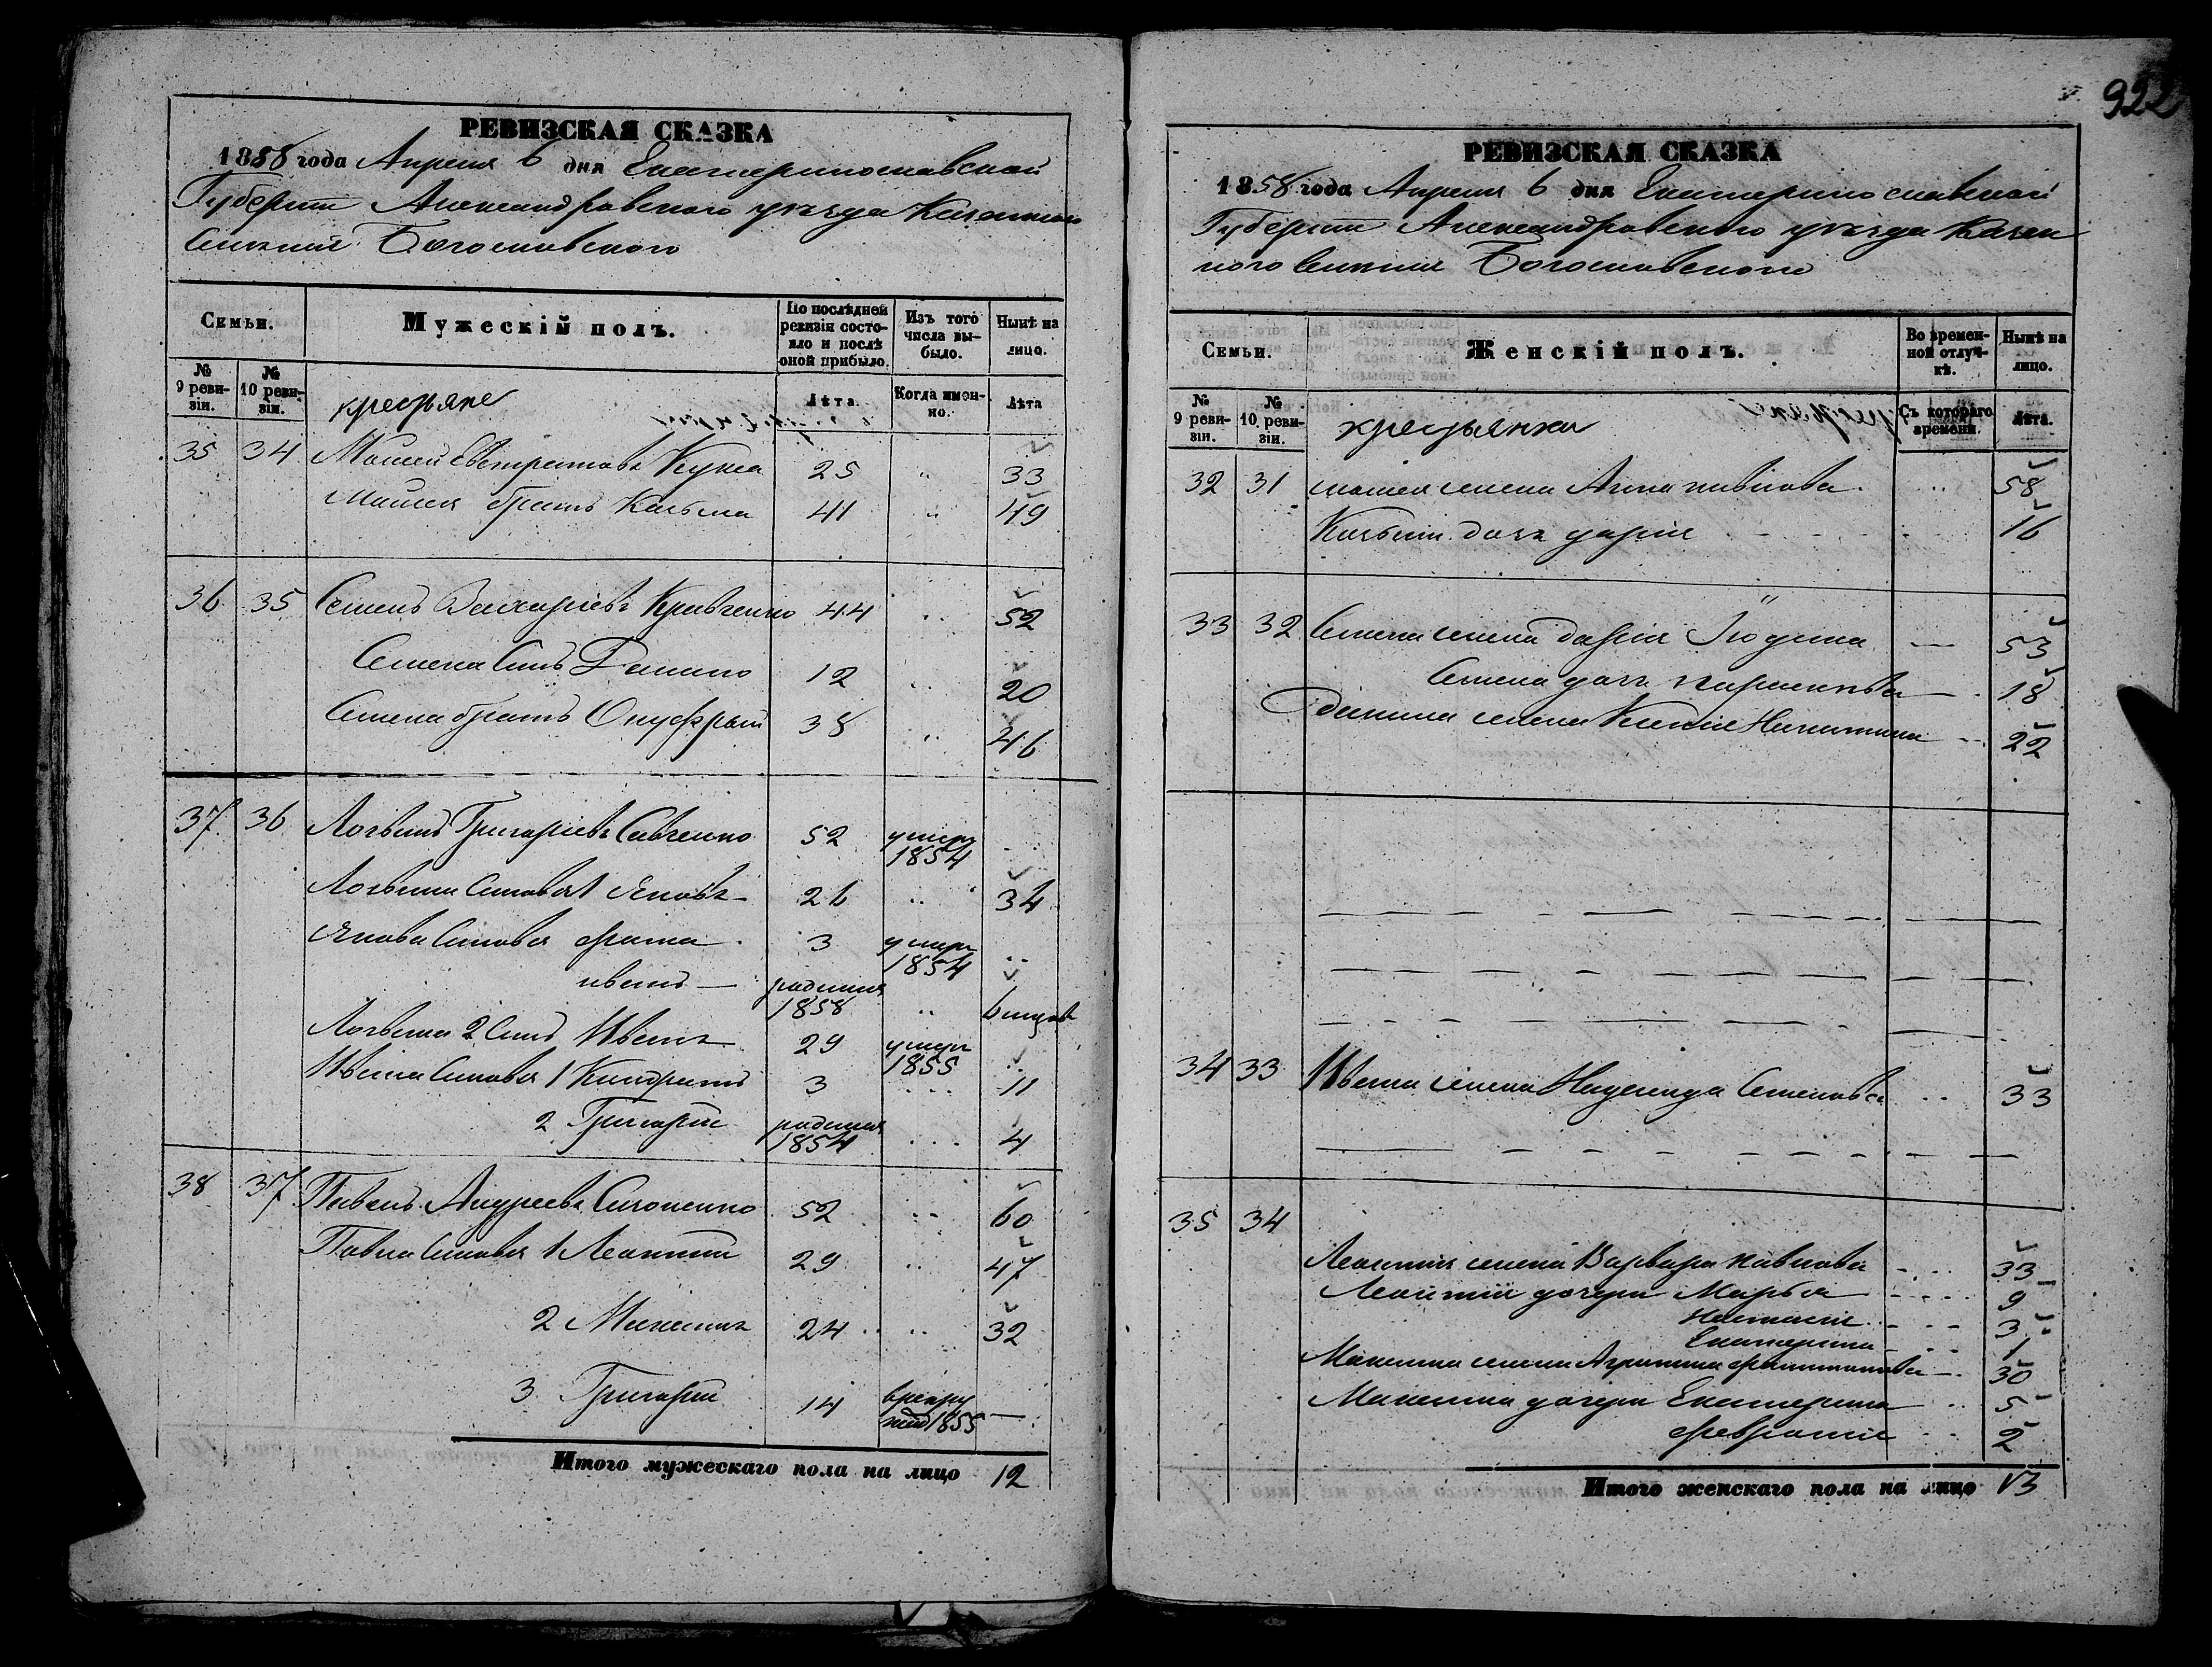 922
РЕВИЗСКАЯ СКАЗКА
1858 года Апреля 6 дня Екатеринославской
Губернии Александровского уезда Казенного
селения Богословского
Семьи.
Мужескій полъ.
По послѣдней ревизіи состояло и послѣ оной прибыло.
Изъ того числа выбыло.
Нынѣ на лицо.
№ 9 ревизіи.
№ 10 ревизіи.
крестьяне
Лѣта.
Когда именно.
Лѣта
35 34 Мошей Евстратовъ Кужа 25 " 33
братъ Козьма 41 " 49
36 35 Семенъ Захаріевъ Кравченко 44 " 52
Семена сынъ Демино 12 " 20
Семена братъ Онуфрій 38 " 46
37 36 Логвинъ Григоріевъ Савченко 52 умер 1854
Логвина сыновья 1 Яковъ 26 " 34
Якова сыновья фома 3 умер 1854
иванъ родился 1858 " 6 месяц
Логвина 2 сынъ Иванъ 29 умер 1855
Ивана сыновья 1 Кондратъ 3 11
2 Григорій родился 1854 4
38 37 Павелъ Андреевъ Симоненко 52 " 60
Павла сыновья 1 Леонтій 29 " 47
2 Максимъ 24 " 32
3 Григорій 14 1855 —
Итого мужескаго пола на лицо 12
РЕВИЗСКАЯ СКАЗКА
1858 года Апреля 6 дня Екатеринославской
Губернии Александровского уезда Казен
ного селения Богословского
Семьи.
Женскій полъ.
Во временной отлучкѣ.
Нынѣ на лицо.
№ 9 ревизіи.
№ 10 ревизіи.
крестьянки
Съ котораго времени.
Лѣта.
32 31 жена Анна павлова 58
Козьмы дочь дарія 16
33 32 Семена жена дарія Юдина — 53
Семена дочь параскева — 18
Демина жена Ксенія Никитина 22
34 33 Ивана жена Надежда Семенова 33
35 34
Леонтія жена Варвара павлова 33
Леонтія дочери Марья 9
Настасія 3
Екатерина 1
Максима жена Агрипина 30
Максима дочери Екатерина 5
Февронія 2
Итого женскаго пола на лицо 13